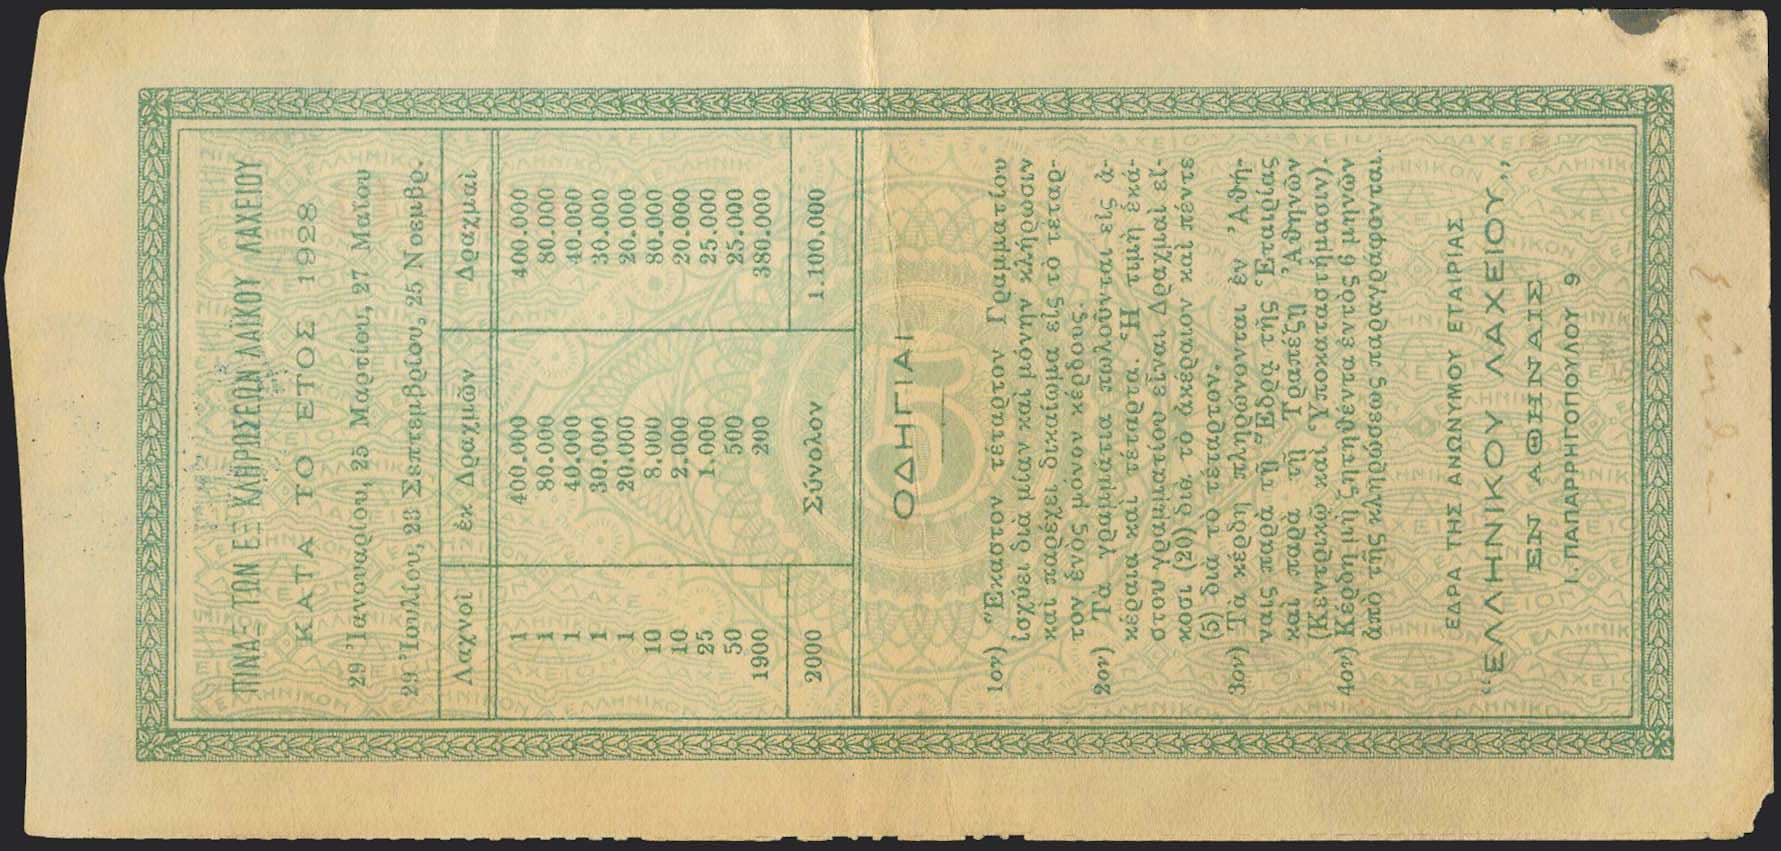 ΠΙΝΑΞ ΤΩΝ ΕΞ ΚΛΗΡΩΣΕΩΝ ΛΑΪΚΟΥ ΛΑΧΕΙΟΥ
ΚΑΤΑ ΤΟ ΕΤΟΣ 1928
29 Ἰανουαρίου, 25 Μαρτίου, 27 Μαΐου
29 Ἰουλίου, 23 Σεπτεμβρίου, 25 Νοεμβρ.
Λαχνοὶ ἐκ Δραχμῶν Δραχμαὶ
1 400.000 400.000
1 80.000 80.000
1 40.000 40.000
1 30.000 30.000
1 20.000 20.000
10 8.000 80.000
10 2.000 20.000
25 1.000 25.000
50 500 25.000
1900 200 380.000
2000 Σύνολον 1.100.000
ΟΔΗΓΙΑΙ
1ον) Ἕκαστον τέταρτον Γραμματίου
ἰσχύει διὰ μίαν καὶ μόνην κλήρωσιν
καὶ παρέχει δικαίωμα εἰς τὸ τέταρ-
τον ἑνὸς μόνον κέρδους.
2ον) Τὰ γραμμάτια πωλοῦνται εἰς ἀ-
κέραια καὶ τέταρτα. Ἡ τιμὴ ἑκά-
στου γραμματίου εἶναι Δραχμαὶ εἴ-
κοσι (20) διὰ τὸ ἀκέραιον καὶ πέντε
(5) διὰ τὸ τέταρτον.
3ον) Τὰ κέρδη πληρώνονται ἐν Ἀθή-
ναις παρὰ τῇ Ἕδρᾳ τῆς Ἑταιρίας
καὶ παρὰ τῇ Τραπέζῃ Ἀθηνῶν
(Κεντρικῷ καὶ Ὑποκαταστήμασιν).
4ον) Κέρδη μὴ ζητηθέντα ἐντὸς 6 μηνῶν
ἀπὸ τῆς κληρώσεως παραγράφονται.
ΕΔΡΑ ΤΗΣ ΑΝΩΝΥΜΟΥ ΕΤΑΙΡΙΑΣ
“ΕΛΛΗΝΙΚΟΥ ΛΑΧΕΙΟΥ„
ΕΝ ΑΘΗΝΑΙΣ
Ι. ΠΑΠΑΡΡΗΓΟΠΟΥΛΟΥ 9
5